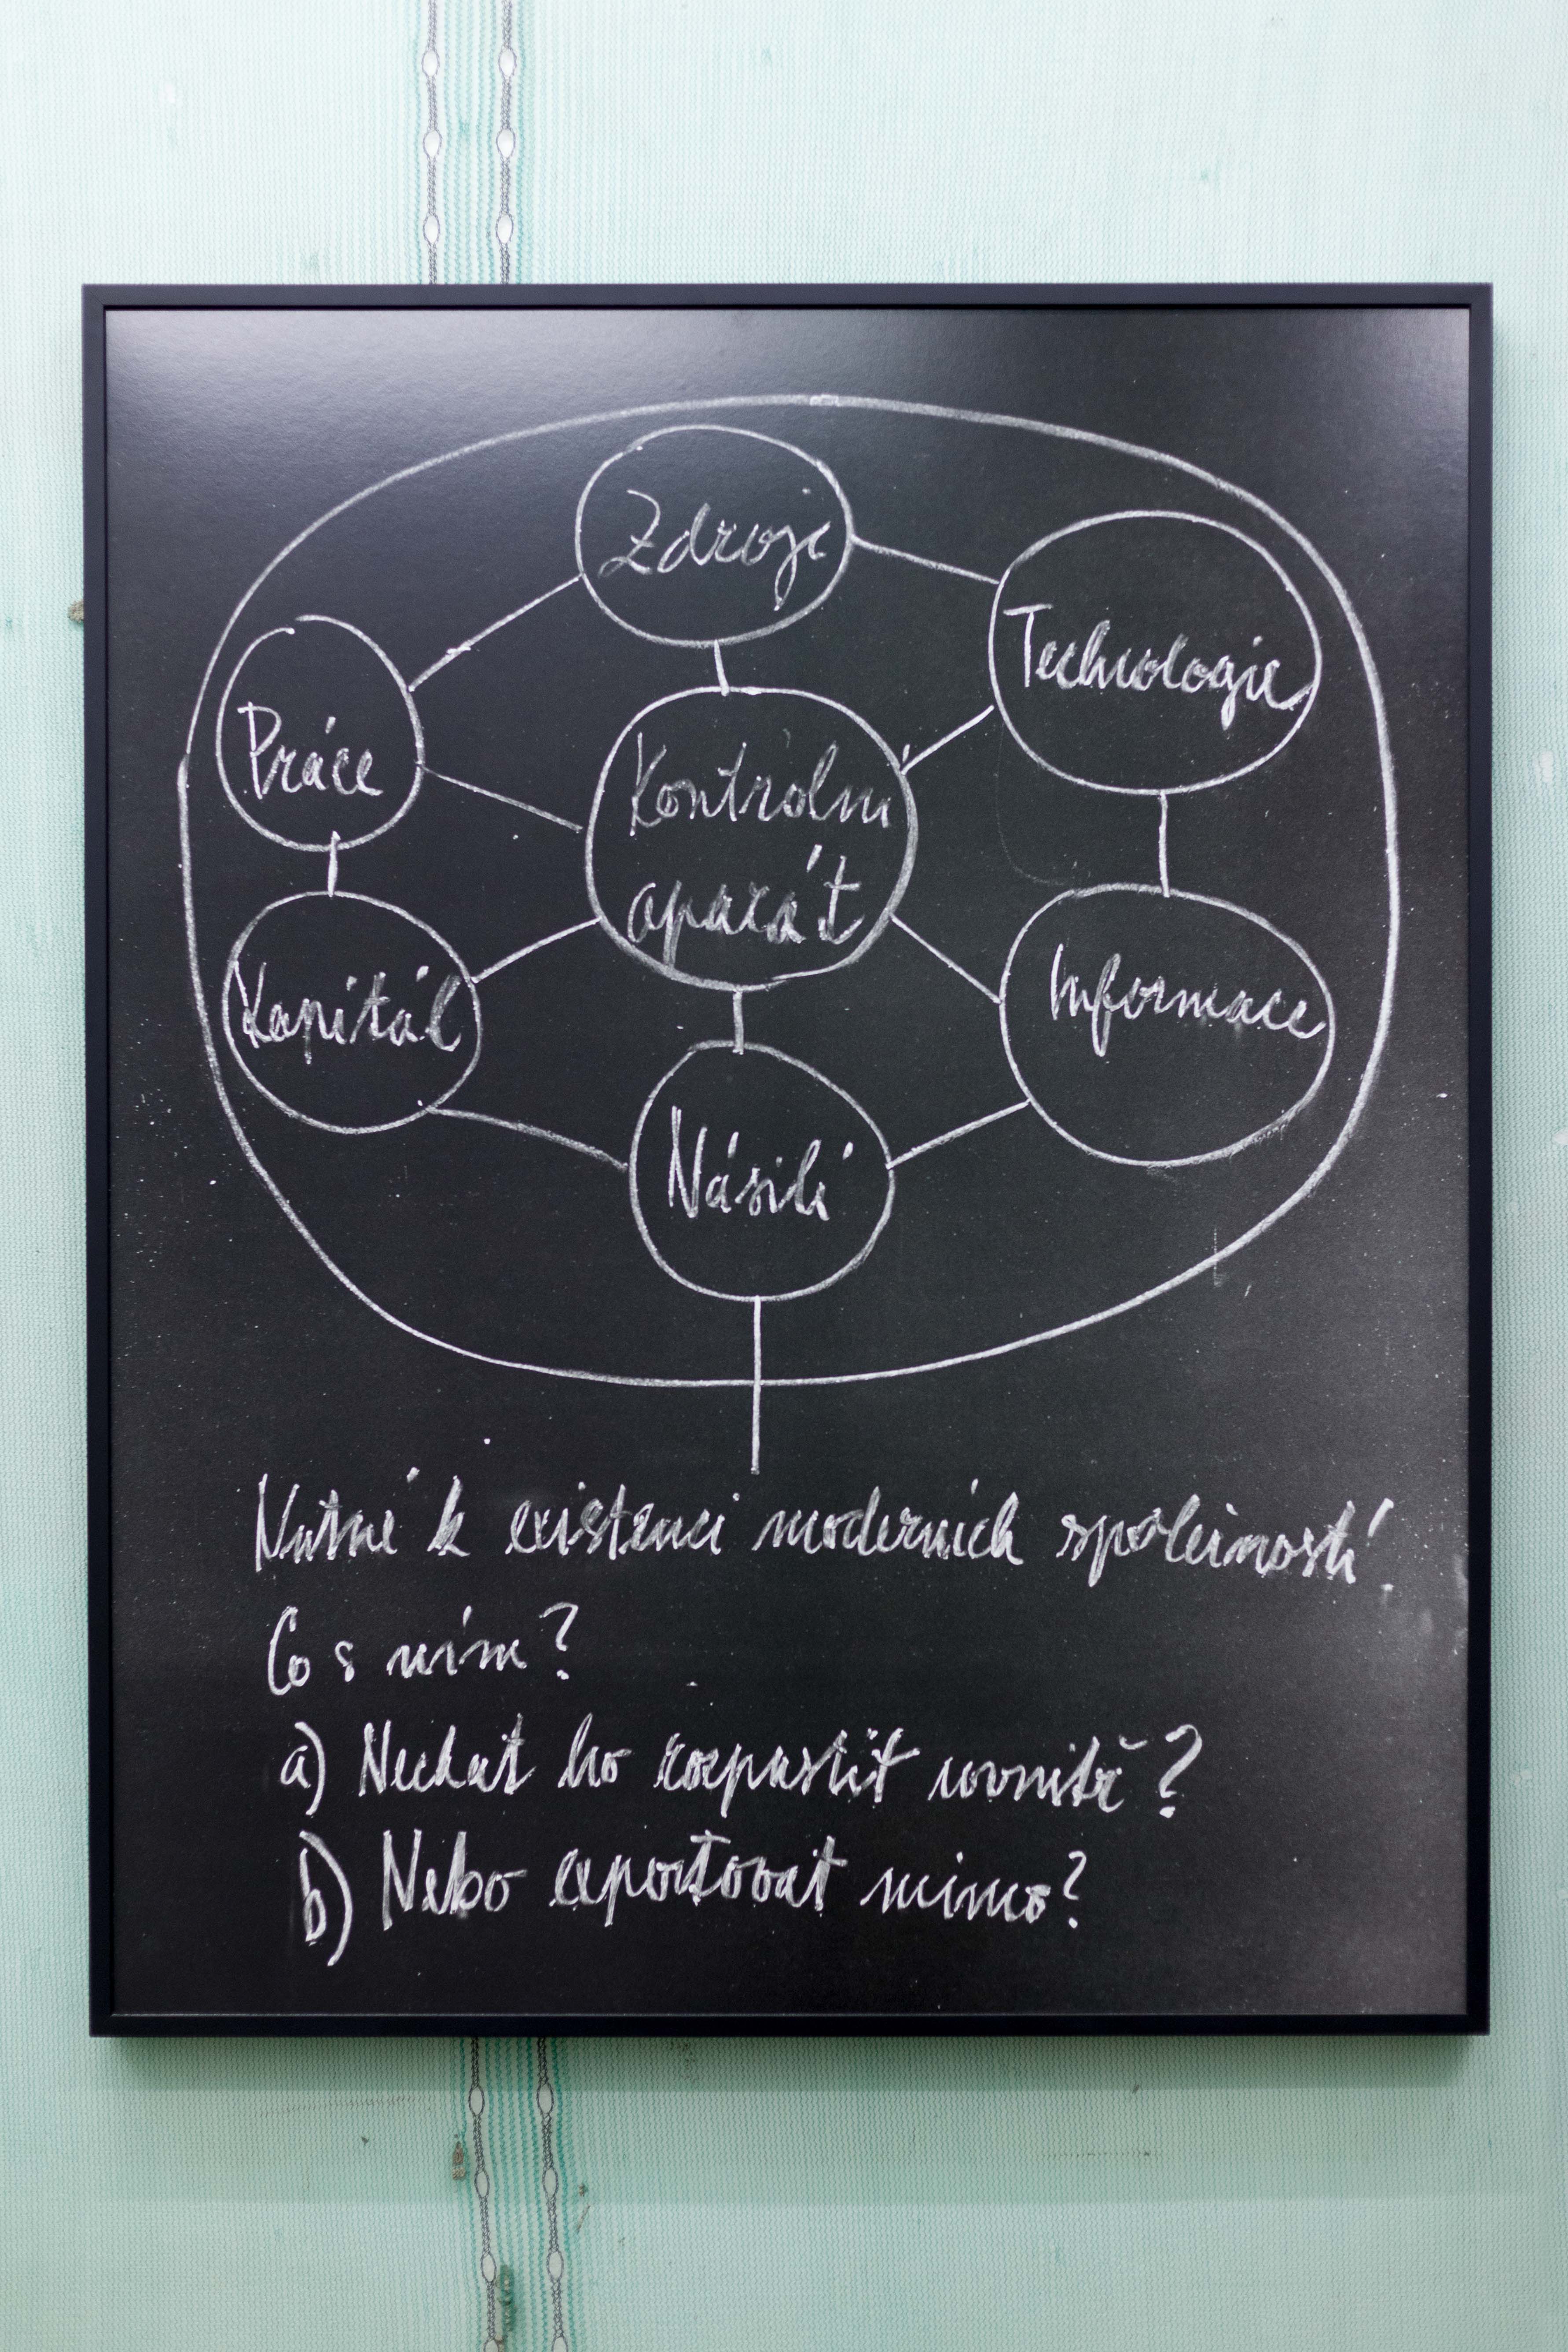 Zdroje
Technologie
Práce
Kontrolní
aparát
Kapitál
Informace
Násilí
Nutné k existenci moderních společností.
Co s ním?
a) Nechat ho rozpustit uvnitř?
b) Nebo exportovat mimo?